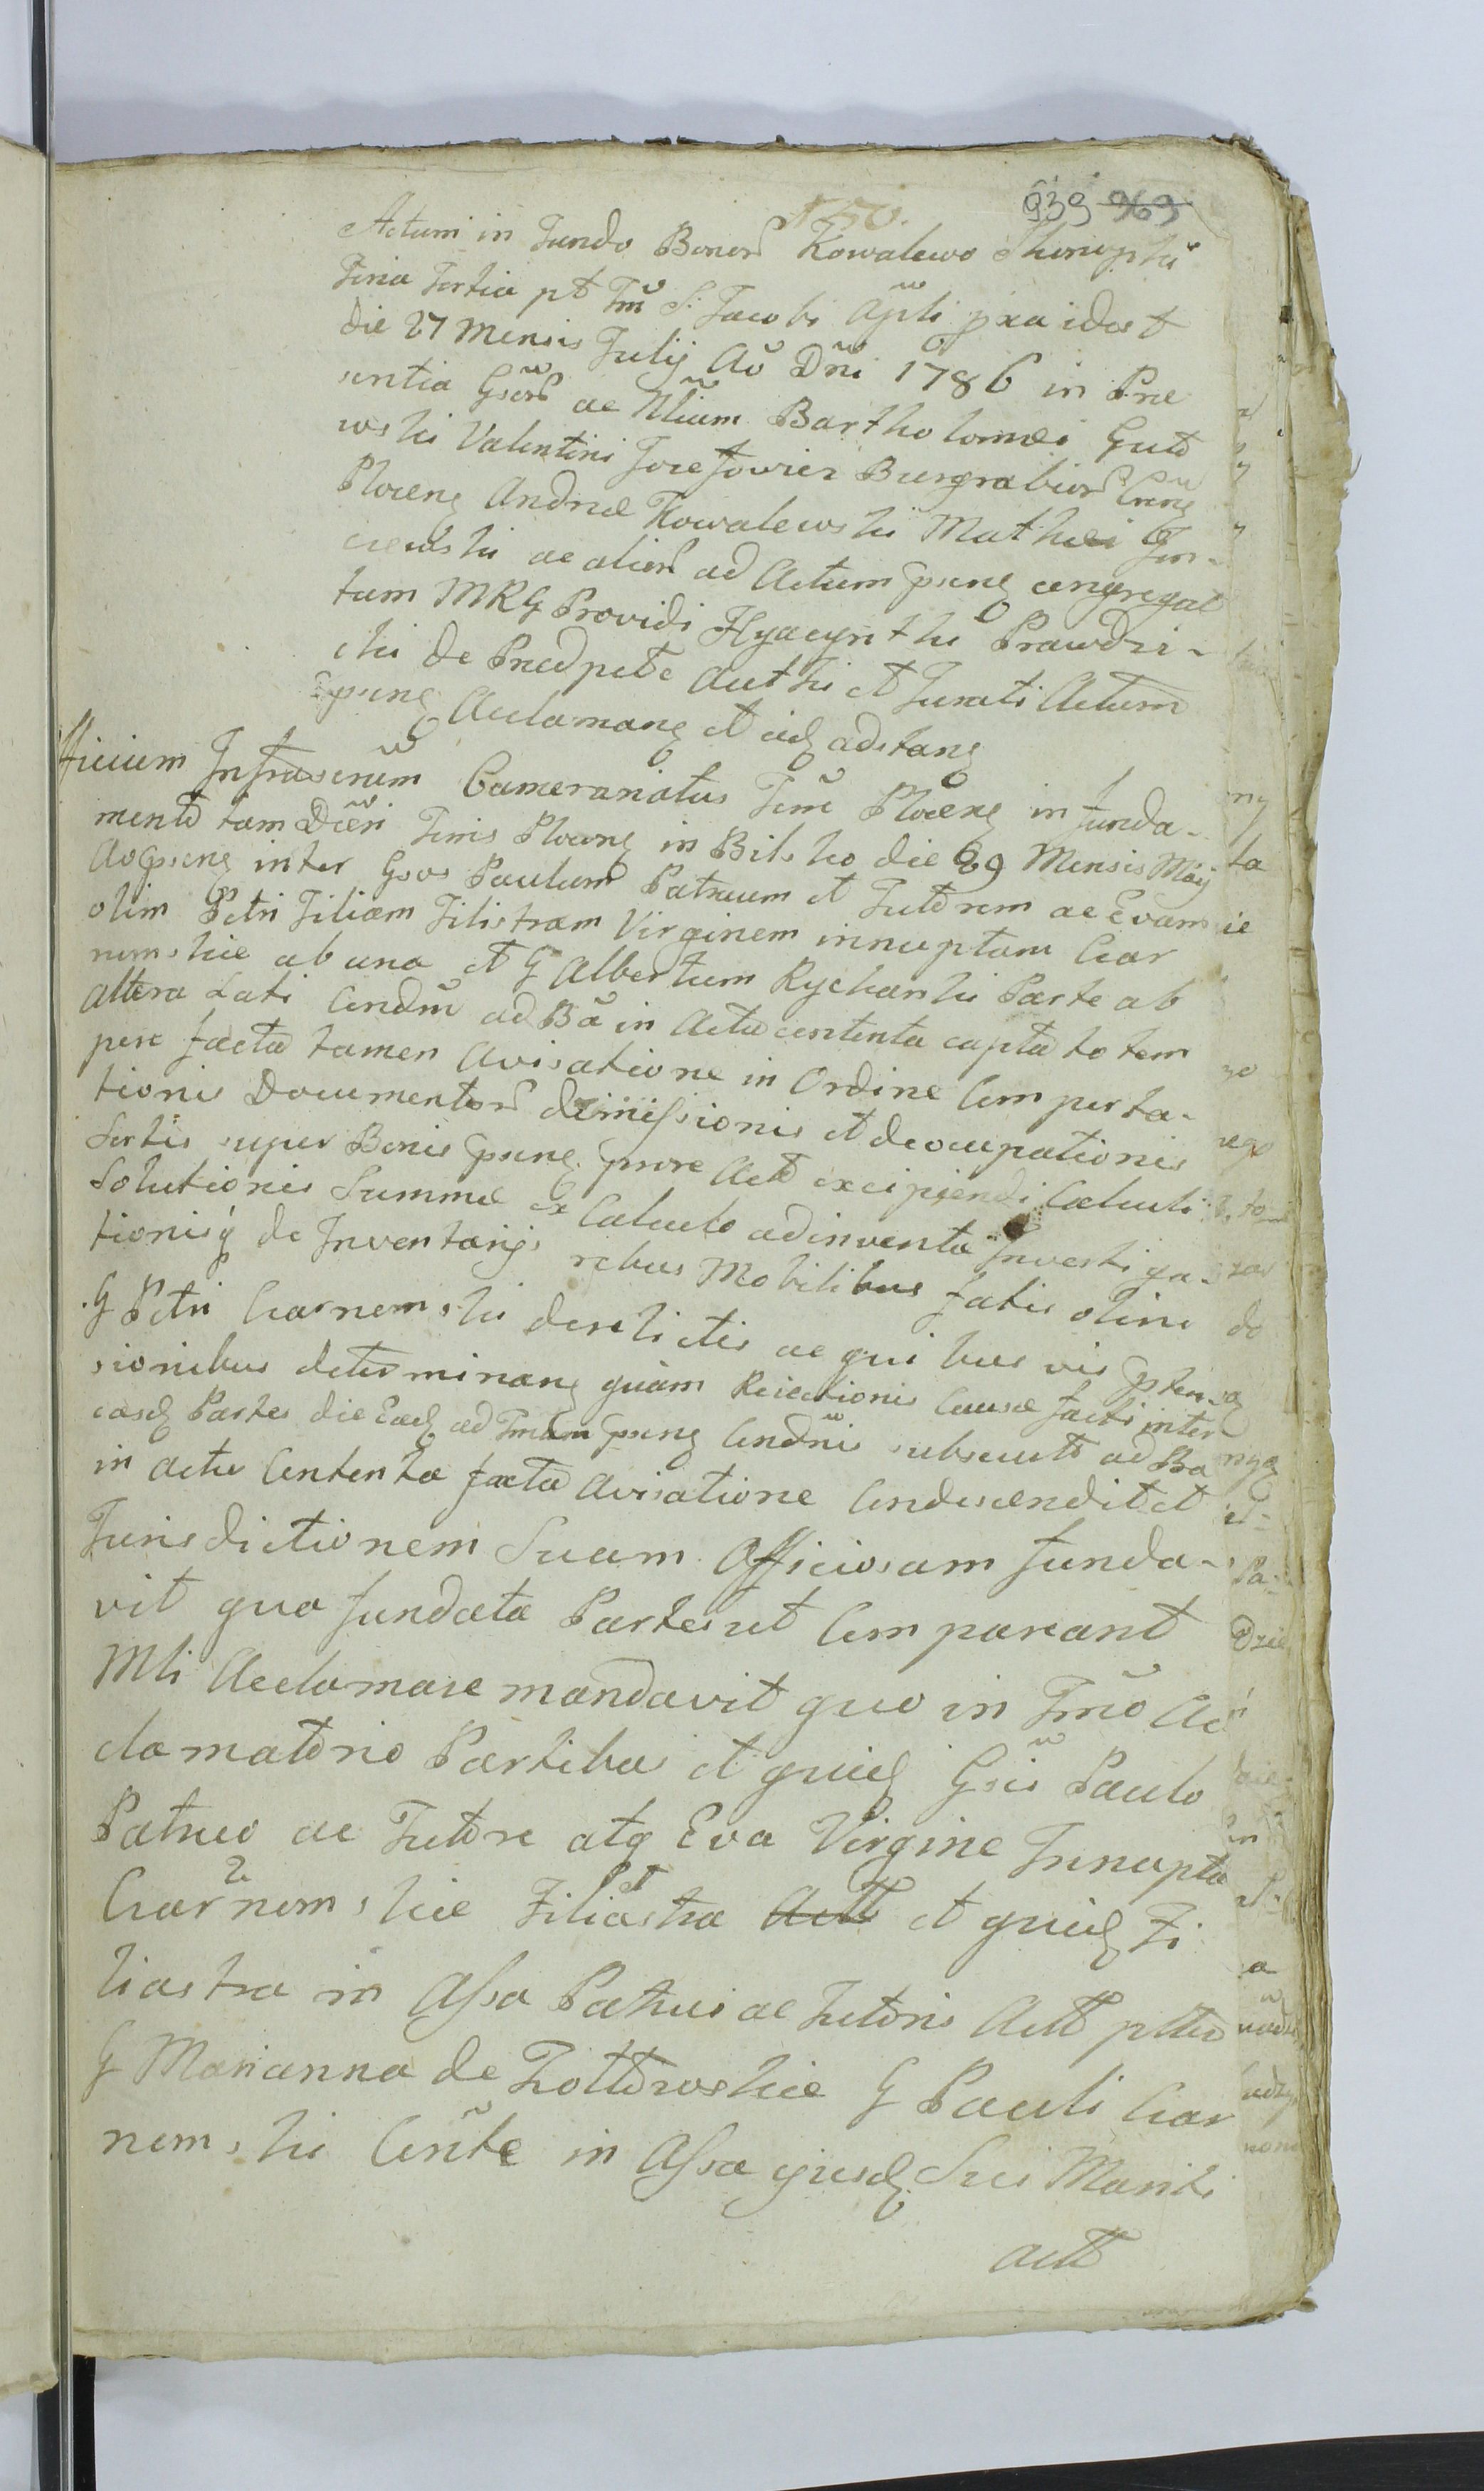 150.
939 969
Actum in Fundo Bonor Kowalewo Skorupki
Feria Tertia pt Fm S: Jacobi Apli pxa id est
die 27 Mensis Julij Ao Dni 1786 in Prae
sentia Gsor ac Nlium Bartholomei Gut
wski Valentini Josefowicz Burgrabior Crens
Plocens Andreae Kowalewski Mathei Jon-
ciewski ac alior ad Actum psens congregat
tum MRG Providi Hyacynthi Prawdzi-
cki de Praedpete Authi et Jurati Actum
psens Acclamans et eid adstans
fficium Infrascrum Camerariatus Trrae Plocens in funda-
mento tam Dcti Trris Plocens in Bilsko die 29 Mensis Maij
Ao psens inter Gsos Paulum Patruum et Tutorem ac Evam
olim Petri Filiam Filistram Virginem innuptam Czar
nomskie ab una et G Albertum Rycharski Parte ab
altera Lati Condni ad Ba in Actu contenta capta totem
pore facta tamen Avisatione in Ordine Comporta-
tionis Documentor dimissionis et deocupationis
Sortis super Bonis psens prove Act excipiendi Calculi
Solutionis Summae ex Calculo adinventa Investiga-
tionisq de Inventarijs rebus Mobilibus fatis olim
G Petri Czarnomski derelictis ac quibusvis ptens
sionibus determinans quam Reiectionis Causae facti inter
easd Partes die Ead ad Tmum psens Condni subsecut ad Ba
in actu Contenta facta Avisatione Condescendit et
Jurisdictionem Suam Officiosam funda-
vit qua fundata Partes ut Compareant
Mli Acclamare mandavit quo in Tmo Ac
clamatorio Partibus et quid Gsis Paulo
Patruo ac Tutore atq Eva Virgine Innupta
Czarnomskie Filiastra Actt et quid Fi
liastra in Assa Patrui ac Tutoris Actt ptta
G Marianna de Zottowskie G Pauli Czar
nomski Conte in Assa ejusd Sui Mariti
actt